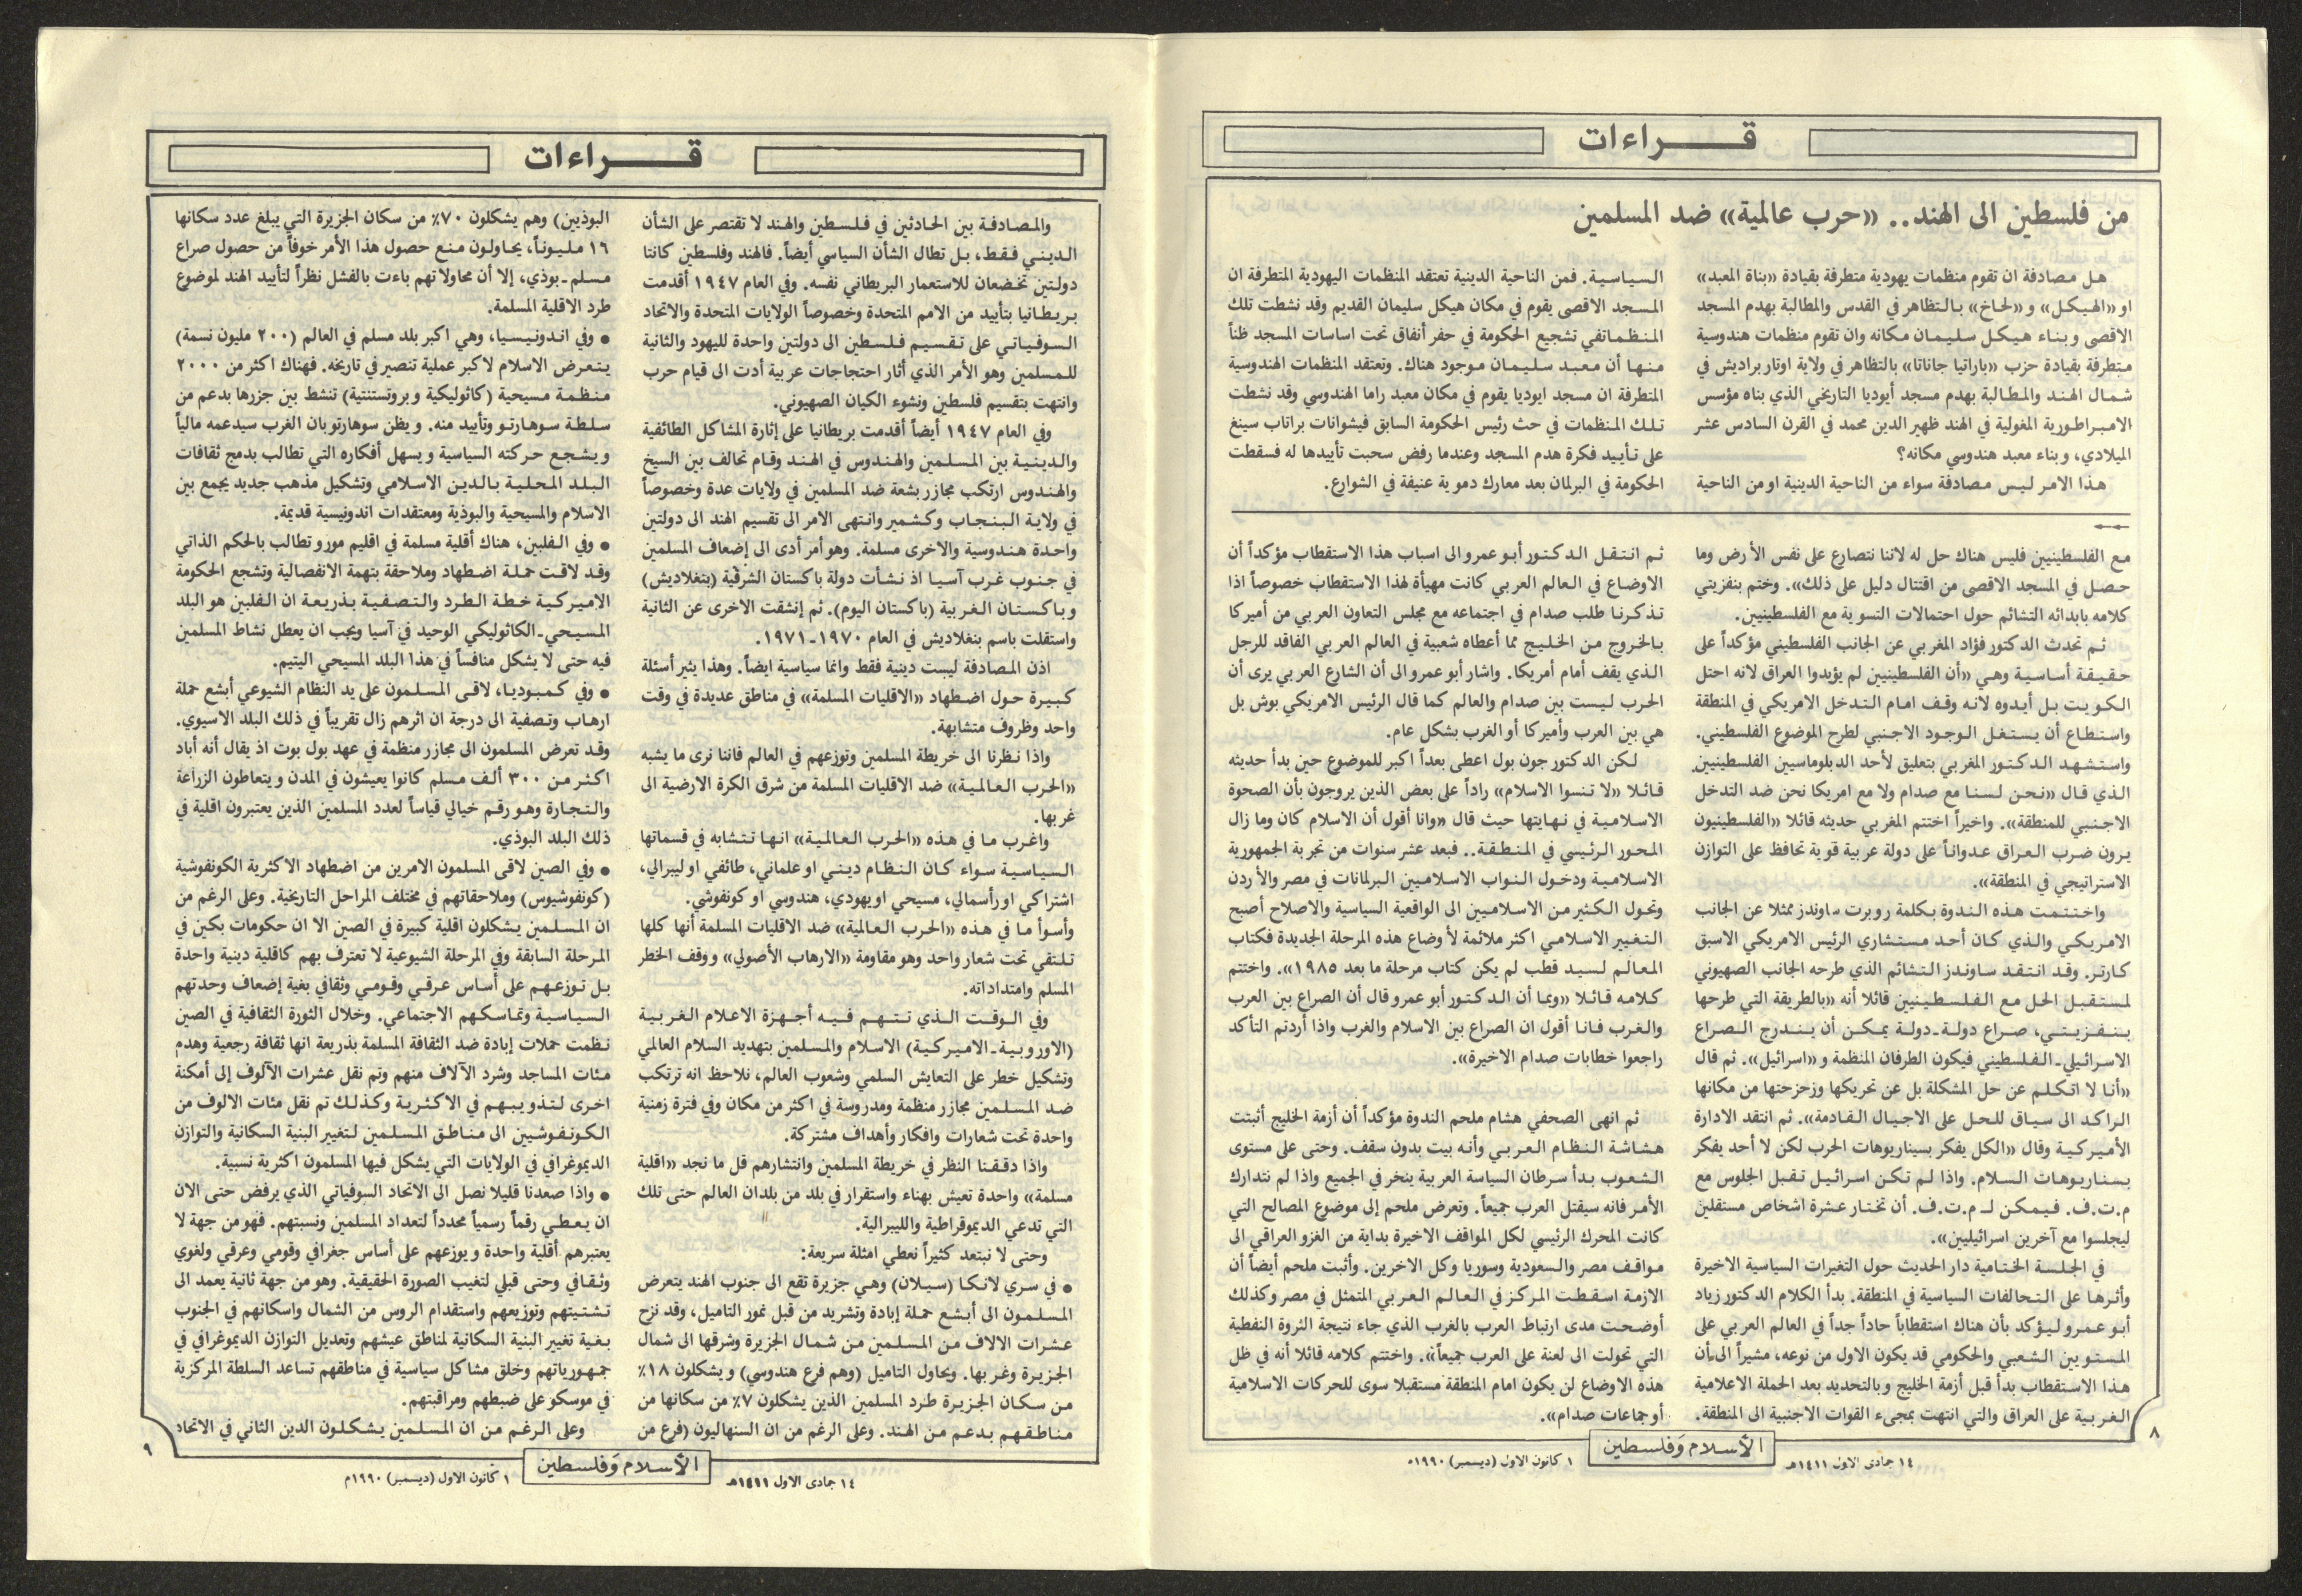 قــــراءات
من فلسطين الى الهند.. «حرب عالمية» ضد المسلمين
هل مصادفة ان تقوم منظمات يهودية متطرفة بقيادة «بناة المعبد»
او «الهيكل» و«لحاخ» بالتظاهر في القدس والمطالبة بهدم المسجد
الاقصى وبناء هيكل سليمان مكانه وان تقوم منظمات هندوسية
متطرفة بقيادة حزب «باراتيا جاناتا» بالتظاهر في ولاية اوتار براديش في
شمال الهند والمطالبة بهدم مسجد أيوديا التاريخي الذي بناه مؤسس
الامبراطورية المغولية في الهند ظهير الدين محمد في القرن السادس عشر
الميلادي، وبناء معبد هندوسي مكانه؟
هذا الامر ليس مصادفة سواء من الناحية الدينية او من الناحية
السياسية. فمن الناحية الدينية تعتقد المنظمات اليهودية المتطرفة ان
المسجد الاقصى يقوم في مكان هيكل سليمان القديم وقد نشطت تلك
المنظماتفي تشجيع الحكومة في حفر أنفاق تحت اساسات المسجد ظناً
منها أن معبد سليمان موجود هناك. وتعتقد المنظمات الهندوسية
المتطرفة ان مسجد ايوديا يقوم في مكان معبد راما الهندوسي وقد نشطت
تلك المنظمات في حث رئيس الحكومة السابق فيشوانات براتاب سينغ
على تأييد فكرة هدم المسجد وعندما رفض سحبت تأييدها له فسقطت
الحكومة في البرلمان بعد معارك دموية عنيفة في الشوارع.
مع الفلسطينيين فليس هناك حل له لاننا نتصارع على نفس الأرض وما
حصل في المسجد الاقصى من اقتتال دليل على ذلك». وختم بنفزيتي
كلامه بابدائه التشائم حول احتمالات التسوية مع الفلسطينيين.
ثم تحدث الدكتور فؤاد المغربي عن الجانب الفلسطيني مؤكداً على
حقيقة أساسية وهي «أن الفلسطينيين لم يؤيدوا العراق لانه احتل
الكويت بل أيدوه لانه وقف امام التدخل الامريكي في المنطقة
واستطاع أن يستغل الوجود الاجنبي لطرح الموضوع الفلسطيني.
واستشهد الدكتور المغربي بتعليق لأحد الدبلوماسيين الفلسطينيين
الذي قال «نحن لسنا مع صدام ولا مع امريكا نحن ضد التدخل
الاجنبي للمنطقة». واخيراً اختتم المغربي حديثه قائلا «الفلسطينيون
يرون ضرب العراق عدواناً على دولة عربية قوية تحافظ على التوازن
الاستراتيجي في المنطقة».
واختتمت هذه الندوة بكلمة روبرت ساوندز ممثلا عن الجانب
الامريكي والذي كان أحد مستشاري الرئيس الامريكي الاسبق
كارتر. وقد انتقد ساوندز التشائم الذي طرحه الجانب الصهيوني
لمستقبل الحل مع الفلسطينيين قائلا أنه «بالطريقة التي طرحها
بنفزيتي، صراع دولة-دولة يمكن أن يندرج الصراع
الاسرائيلي-الفلسطيني فيكون الطرفان المنظمة و«اسرائيل». ثم قال
«أنا لا اتكلم عن حل المشكلة بل عن تحريكها وزحزحتها من مكانها
الراكد الى سياق للحل على الاجيال القادمة». ثم انتقد الادارة
الأميركية وقال «الكل يفكر بسيناريوهات الحرب لكن لا أحد يفكر
بسناريوهات السلام. واذا لم تكن اسرائيل تقبل الجلوس مع
م.ت.ف. فيمكن لـ م.ت.ف. أن تختار عشرة اشخاص مستقلين
ليجلسوا مع آخرين اسرائيليين».
في الجلسة الختامية دار الحديث حول التغيرات السياسية الاخيرة
وأثرها على التحالفات السياسية في المنطقة. بدأ الكلام الدكتور زياد
أبو عمرو ليؤكد بأن هناك استقطاباً حاداً جداً في العالم العربي على
المستويين الشعبي والحكومي قد يكون الاول من نوعه، مشيراً الى أن
هذا الاستقطاب بدأ قبل أزمة الخليج وبالتحديد بعد الحملة الاعلامية
الغربية على العراق والتي انتهت بمجىء القوات الاجنبية الى المنطقة.
ثم انتقل الدكتور أبو عمرو الى اسباب هذا الاستقطاب مؤكداً أن
الاوضاع في العالم العربي كانت مهيأة لهذا الاستقطاب خصوصاً اذا
تذكرنا طلب صدام في اجتماعه مع مجلس التعاون العربي من أميركا
بالخروج من الخليج مما أعطاه شعبية في العالم العربي الفاقد للرجل
الذي يقف أمام أمريكا. واشار أبو عمرو الى أن الشارع العربي يرى أن
الحرب ليست بين صدام والعالم كما قال الرئيس الامريكي بوش بل
هي بين العرب وأميركا أو الغرب بشكل عام.
لكن الدكتور جون بول اعطى بعداً اكبر للموضوع حين بدأ حديثه
قائلا «لا تنسوا الاسلام» راداً على بعض الذين يروجون بأن الصحوة
الاسلامية في نهايتها حيث قال «وانا أقول أن الاسلام كان وما زال
المحور الرئيسي في المنطقة.. فبعد عشر سنوات من تجربة الجمهورية
الاسلامية ودخول النواب الاسلاميين البرلمانات في مصر والأردن
وتحول الكثير من الاسلاميين الى الواقعية السياسية والاصلاح أصبح
التغيير الاسلامي اكثر ملائمة لأوضاع هذه المرحلة الجديدة فكتاب
المعالم لسيد قطب لم يكن كتاب مرحلة ما بعد ١٩٨٥». واختتم
كلامه قائلا «وبما أن الدكتور أبو عمرو قال أن الصراع بين العرب
والغرب فانا أقول ان الصراع بين الاسلام والغرب واذا أردتم التأكد
راجعوا خطابات صدام الاخيرة».
ثم انهى الصحفي هشام ملحم الندوة مؤكداً أن أزمة الخليج أثبتت
هشاشة النظام العربي وأنه بيت بدون سقف. وحتى على مستوى
الشعوب بدأ سرطان السياسة العربية ينخر في الجميع واذا لم نتدارك
الأمر فانه سيقتل العرب جميعاً. وتعرض ملحم إلى موضوع المصالح التي
كانت المحرك الرئيسي لكل المواقف الاخيرة بداية من الغزو العراقي الى
مواقف مصر والسعودية وسوريا وكل الاخرين. وأثبت ملحم أيضاً أن
الازمة اسقطت المركز في العالم العربي المتمثل في مصر وكذلك
أوضحت مدى ارتباط العرب بالغرب الذي جاء نتيجة الثروة النفطية
التي تحولت الى لعنة على العرب جميعاً». واختتم كلامه قائلا أنه في ظل
هذه الاوضاع لن يكون امام المنطقة مستقبلا سوى للحركات الاسلامية
أو جماعات صدام».
٨
١٤ جمادى الاول ١٤١١هـ
الأسلام وَفلسطين
١ كانون الاول (ديسمبر) ١٩٩٠
قــــراءات
والمصادفة بين الحادثين في فلسطين والهند لا تقتصر على الشأن
الديني فقط، بل تطال الشأن السياسي أيضاً. فالهند وفلسطين كانتا
دولتين تخضعان للاستعمار البريطاني نفسه. وفي العام ١٩٤٧ أقدمت
بريطانيا بتأييد من الامم المتحدة وخصوصاً الولايات المتحدة والاتحاد
السوفياتي على تقسيم فلسطين الى دولتين واحدة لليهود والثانية
للمسلمين وهو الأمر الذي أثار احتجاجات عربية أدت الى قيام حرب
وانتهت بتقسيم فلسطين ونشوء الكيان الصهيوني.
وفي العام ١٩٤٧ أيضاً أقدمت بريطانيا على إثارة المشاكل الطائفية
والدينية بين المسلمين والهندوس في الهند وقام تحالف بين السيخ
والهندوس ارتكب مجازر بشعة ضد المسلمين في ولايات عدة وخصوصاً
في ولاية البنجاب وكشمير وانتهى الامر الى تقسيم الهند الى دولتين
واحدة هندوسية والاخرى مسلمة. وهو أمر أدى الى إضعاف المسلمين
في جنوب غرب آسيا اذ نشأت دولة باكستان الشرقية (بنغلاديش)
وباكستان الغربية (باكستان اليوم). ثم إنشقت الاخرى عن الثانية
واستقلت باسم بنغلاديش في العام ١٩٧٠-١٩٧١.
اذن المصادفة ليست دينية فقط وانما سياسية ايضاً. وهذا يثير أسئلة
كبيرة حول اضطهاد «الاقليات المسلمة» في مناطق عديدة في وقت
واحد وظروف متشابهة.
واذا نظرنا الى خريطة المسلمين وتوزعهم في العالم فاننا نرى ما يشبه
«الحرب العالمية» ضد الاقليات المسلمة من شرق الكرة الارضية الى
غربها.
واغرب ما في هذه «الحرب العالمية» انها تتشابه في قسماتها
السياسية سواء كان النظام ديني او علماني، طائفي او ليبرالي،
اشتراكي او رأسمالي، مسيحي او يهودي، هندوسي او كونفوشي.
وأسوأ ما في هذه «الحرب العالمية» ضد الاقليات المسلمة أنها كلها
تلتقي تحت شعار واحد وهو مقاومة «الارهاب الأصولي» ووقف الخطر
المسلم وامتداداته.
وفي الوقت الذي تتهم فيه أجهزة الاعلام الغربية
(الاوروبية-الاميركية) الاسلام والمسلمين بتهديد السلام العالمي
وتشكيل خطر على التعايش السلمي وشعوب العالم، نلاحظ انه ترتكب
ضد المسلمين مجازر منظمة ومدروسة في اكثر من مكان وفي فترة زمنية
واحدة تحت شعارات وافكار وأهداف مشتركة.
واذا دققنا النظر في خريطة المسلمين وانتشارهم قل ما نجد «اقلية
مسلمة» واحدة تعيش بهناء واستقرار في بلد من بلدان العالم حتى تلك
التي تدعي الديموقراطية والليبرالية.
وحتى لا نبتعد كثيراً نعطي امثلة سريعة:
● في سري لانكا (سيلان) وهي جزيرة تقع الى جنوب الهند يتعرض
المسلمون الى أبشع حملة إبادة وتشريد من قبل نمور التاميل، وقد نزح
عشرات الالاف من المسلمين من شمال الجزيرة وشرقها الى شمال
الجزيرة وغربها. ويحاول التاميل (وهم فرع هندوسي) ويشكلون ١٨٪
من سكان الجزيرة طرد المسلمين الذين يشكلون ٧٪ من سكانها من
مناطقهم بدعم من الهند. وعلى الرغم من ان السنهاليون (فرع من
البوذيين) وهم يشكلون ٧٠٪ من سكان الجزيرة التي يبلغ عدد سكانها
١٦ مليوناً، يحاولون منع حصول هذا الأمر خوفاً من حصول صراع
مسلم-بوذي، إلا أن محاولاتهم باءت بالفشل نظراً لتأييد الهند لموضوع
طرد الاقلية المسلمة.
● وفي اندونيسيا، وهي اكبر بلد مسلم في العالم (٢٠٠ مليون نسمة)
يتعرض الاسلام لاكبر عملية تنصير في تاريخه. فهناك اكثر من ٢٠٠٠
منظمة مسيحية (كاثوليكية وبروتستنتية) تنشط بين جزرها بدعم من
سلطة سوهارتو وتأييد منه. ويظن سوهارتو بان الغرب سيدعمه مالياً
ويشجع حركته السياسية ويسهل أفكاره التي تطالب بدمج ثقافات
البلد المحلية بالدين الاسلامي وتشكيل مذهب جديد يجمع بين
الاسلام والمسيحية والبوذية ومعتقدات اندونيسية قديمة.
● وفي الفلبين، هناك أقلية مسلمة في اقليم مورو تطالب بالحكم الذاتي
وقد لاقت حملة اضطهاد وملاحقة بتهمة الانفصالية وتشجع الحكومة
الاميركية خطة الطرد والتصفية بذريعة ان الفلبين هو البلد
المسيحي-الكاثوليكي الوحيد في آسيا ويجب ان يعطل نشاط المسلمين
فيه حتى لا يشكل منافساً في هذا البلد المسيحي اليتيم.
● وفي كمبوديا، لاقى المسلمون على يد النظام الشيوعي أبشع حملة
ارهاب وتصفية الى درجة ان اثرهم زال تقريباً في ذلك البلد الاسيوي.
وقد تعرض المسلمون الى مجازر منظمة في عهد بول بوت اذ يقال أنه أباد
اكثر من ٣٠٠ ألف مسلم كانوا يعيشون في المدن ويتعاطون الزراعة
والتجارة وهو رقم خيالي قياساً لعدد المسلمين الذين يعتبرون اقلية في
ذلك البلد البوذي.
● وفي الصين لاقى المسلمون الامرين من اضطهاد الاكثرية الكونفوشية
(كونفوشيوس) وملاحقاتهم في مختلف المراحل التاريخية. وعلى الرغم من
ان المسلمين يشكلون اقلية كبيرة في الصين الا ان حكومات بكين في
المرحلة السابقة وفي المرحلة الشيوعية لا تعترف بهم كاقلية دينية واحدة
بل توزعهم على أساس عرقي وقومي وثقافي بغية إضعاف وحدتهم
السياسية وتماسكهم الاجتماعي. وخلال الثورة الثقافية في الصين
نظمت حملات إبادة ضد الثقافة المسلمة بذريعة انها ثقافة رجعية وهدم
مئات المساجد وشرد الآلاف منهم وتم نقل عشرات الآلوف إلى أمكنة
اخرى لتذويبهم في الاكثرية وكذلك تم نقل مئات الالوف من
الكونفوشيين الى مناطق المسلمين لتغيير البنية السكانية والتوازن
الديموغرافي في الولايات التي يشكل فيها المسلمون اكثرية نسبية.
● واذا صعدنا قليلا نصل الى الاتحاد السوفياتي الذي يرفض حتى الان
ان يعطي رقماً رسمياً محدداً لتعداد المسلمين ونسبتهم. فهو من جهة لا
يعتبرهم أقلية واحدة ويوزعهم على أساس جغرافي وقومي وعرقي ولغوي
وثقافي وحتى قبلي لتغيب الصورة الحقيقية. وهو من جهة ثانية يعمد الى
تشتيتهم وتوزيعهم واستقدام الروس من الشمال واسكانهم في الجنوب
بغية تغيير البنية السكانية لمناطق عيشهم وتعديل التوازن الديموغرافي في
جمهورياتهم وخلق مشاكل سياسية في مناطقهم تساعد السلطة المركزية
في موسكو على ضبطهم ومراقبتهم.
وعلى الرغم من ان المسلمين يشكلون الدين الثاني في الاتحاد
٩
١٤ جمادى الاول ١٤١١هـ
الأسلام وَفلسطين
١ كانون الاول (ديسمبر) ١٩٩٠م